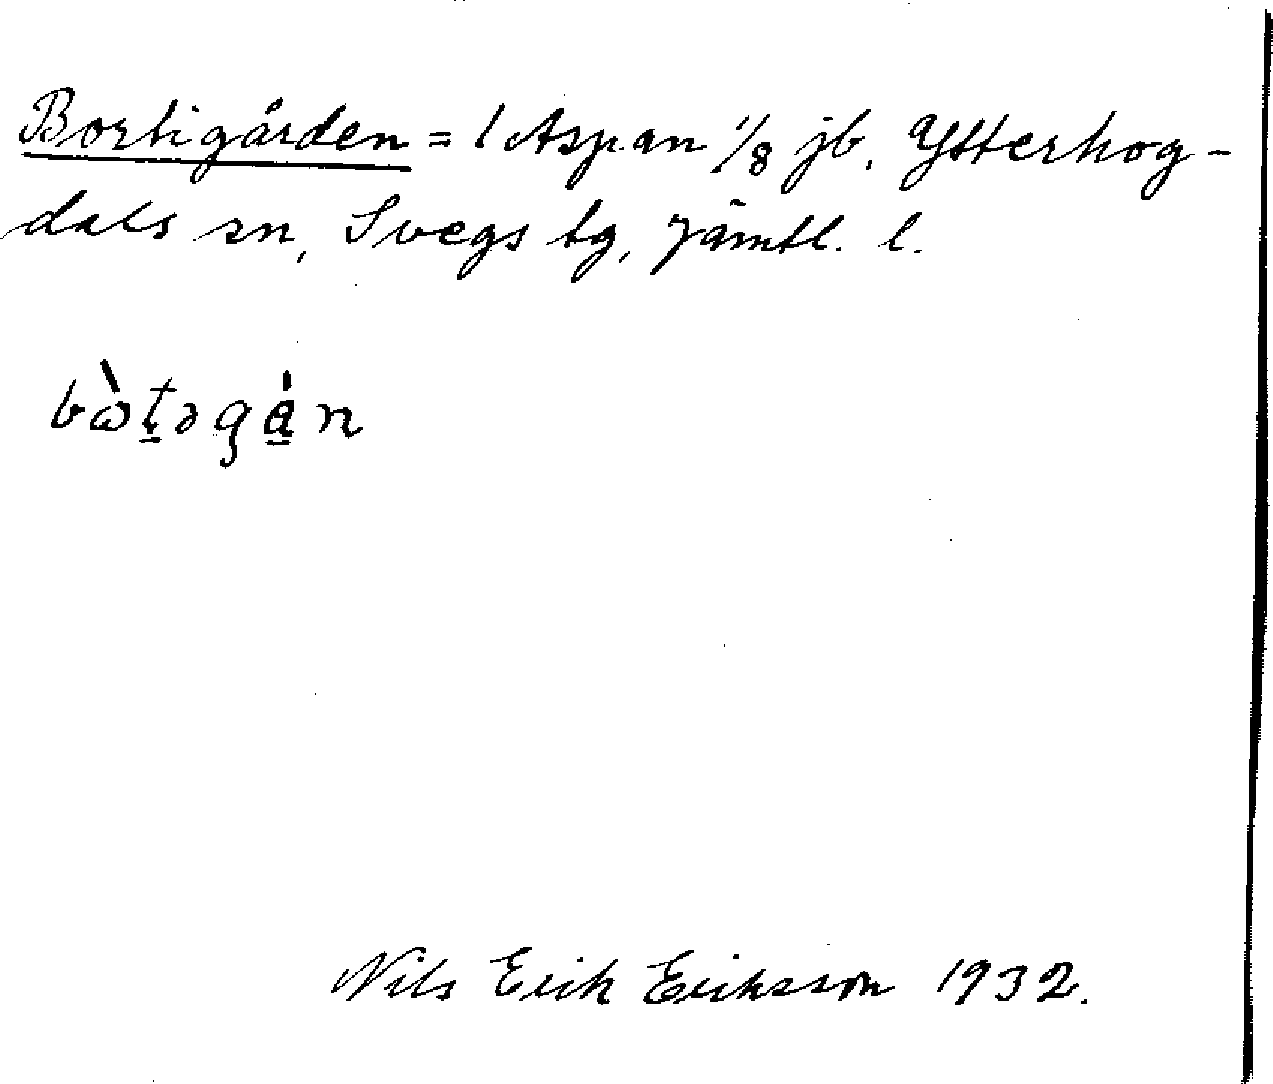 Bortigården = 1 Aspan 1/8 jb. Ytterhog-
dals sn, Svegs tg, Jämtl. l.
bὼt̠əgȧ̠n
Nils Erik Eriksson 1932.